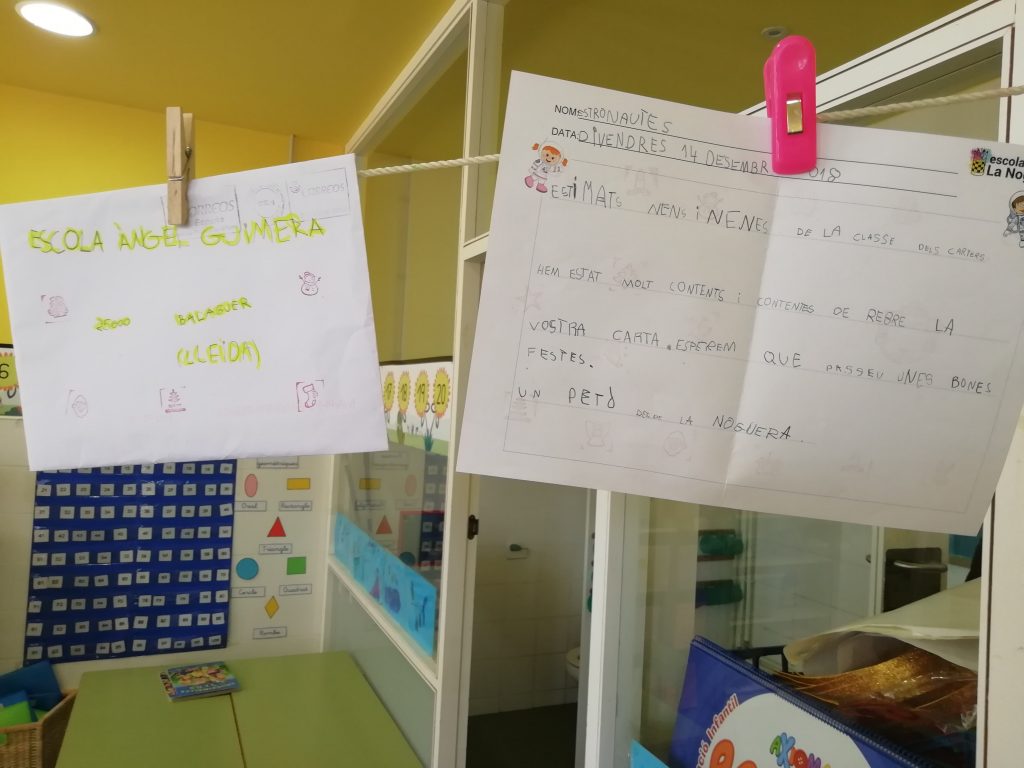 CORREOS
CORREOS
ESCOLA ÀNGEL GUIMERÀ
25000 BALAGUER
(LLEIDA)
NOM: ESTRONAUTES
DATA: DIVENDRES 14 DESEMBRE 2018
escola
La No
ESTIMATS NENS i NENES DE LA CLASSE DELS CARTERS
HEM ESTAT MOLT CONTENTS i CONTENTES DE REBRE LA
VOSTRA CARTA. ESPEREM QUE PASSEU UNES BONES
FESTES.
UN PETÓ DES DE LA NOGUERA.
17 18 19 20
Oval Rectangle
Triangle
Cercle Quadrat
Rombe
ció Infantil
AXIOM